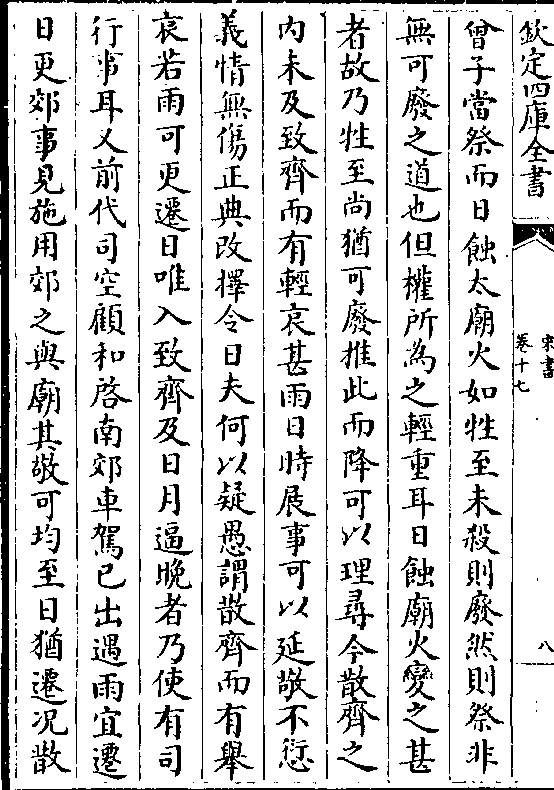 欽定四庫全書
宋書
卷十七
八
曾子當祭而日蝕太廟火如牲至未殺則廢然則祭非
無可廢之道也但權所為之輕重耳日蝕廟火變之甚
者故乃牲至尚猶可廢推此而降可以理尋今散齊之
内未及致齊而有輕哀甚雨日時展事可以延敬不愆
義情無傷正典改擇令日夫何以疑愚謂散齊而有舉
哀若雨可更遷日唯入致齊及日月逼晩者乃使有司
行事耳又前代司空顧和啓南郊車駕已出遇雨宜遷
日更郊事見施用郊之與廟其敬可均至日猶遷况散